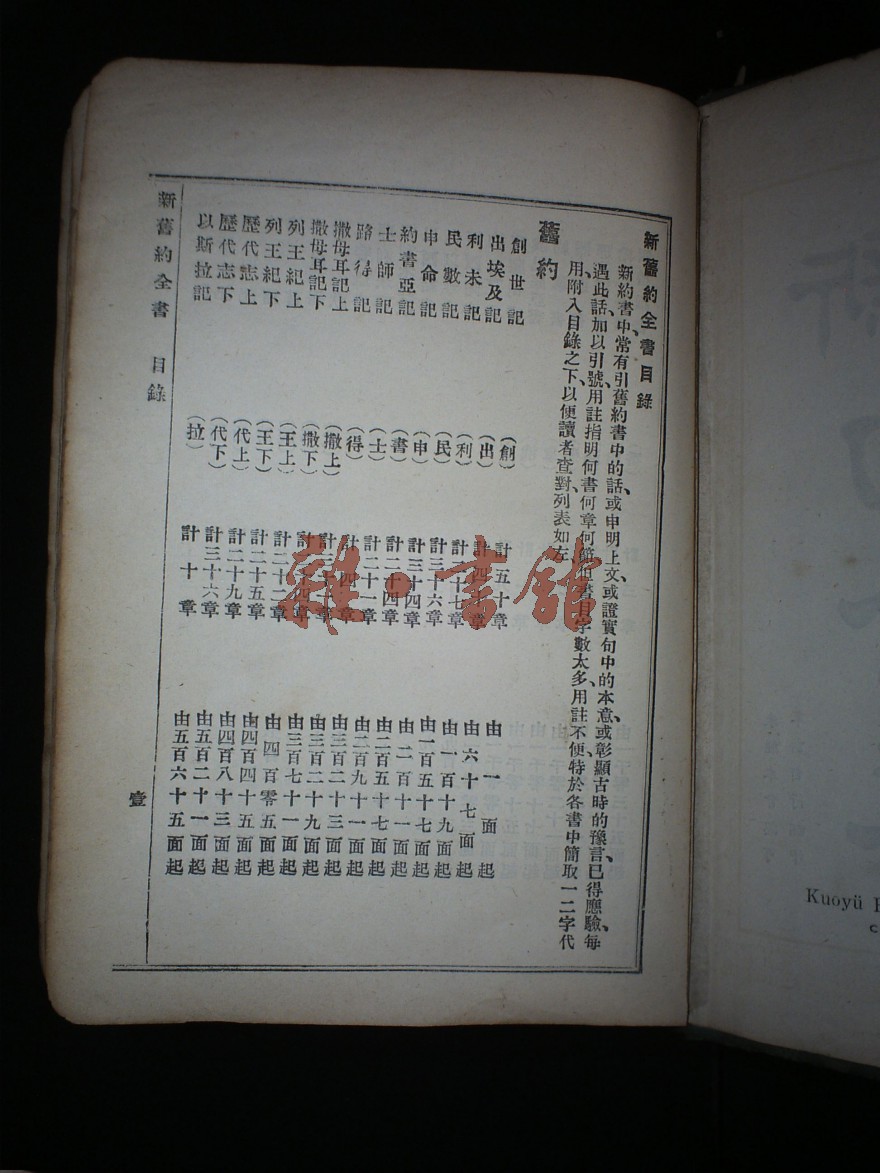 新舊約全書目錄
新約書中、常有引舊約書中的話、或申明上文、或證實句中的本意、或彰顯古時的豫言、已得應驗、每
遇此話、加以引號、用註指明何書何章何節、但書目字數太多、用註不便、特於各書中簡取一二字代
用、附入目錄之下、以便讀者查對、列表如左、
舊約
創世記 (創) 計五十章 由一面起
出埃及記 (出) 計四十章 由六十七面起
利未記 (利) 計二十七章 由一百十九面起
民數記 (民) 計三十六章 由一百五十七面起
申命記 (申) 計三十四章 由二百十一面起
約書亞記 (書) 計二十四章 由二百五十七面起
士師記 (士) 計二十一章 由二百九十一面起
路得記 (得) 計四章 由三百二十三面起
撒母耳記上 (撒上) 計三十一章 由三百二十九面起
撒母耳記下 (撒下) 計二十四章 由三百七十一面起
列王紀上 (王上) 計二十二章 由四百零五面起
列王紀下 (王下) 計二十五章 由四百四十五面起
歷代志上 (代上) 計二十九章 由四百八十三面起
歷代志下 (代下) 計三十六章 由五百二十一面起
以斯拉記 (拉) 計十章 由五百六十五面起
新舊約全書 目錄
壹
雜·書館
Kuoyü